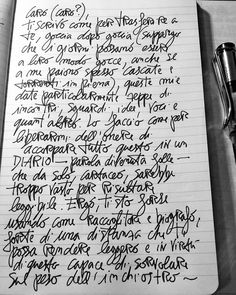 Caro (cara?),
ti scrivo come per trasferire a
te, goccia dopo goccia (supponga
che i giorni possano essere
a loro modo gocce, anche se
a me paiono spesso cascate e
torrenti in piena), queste mie
date particolarmente zeppe di
incontri, sguardi, idee, voci e
quant'altro. Lo faccio come per
liberarmi dell'onere di
accorpare tutto questo in un
DIARIO — parola divenuta folle —
che da solo, cartaceo, sarebbe
troppo vasto per risultare
leggibile. Ergo, ti sto forse
usando come raccoglitore e biografo,
forte di una distanza che ti
possa rendere leggero e in virtù
di questo capace di sorvolare
sul peso dell'inchiostro ~